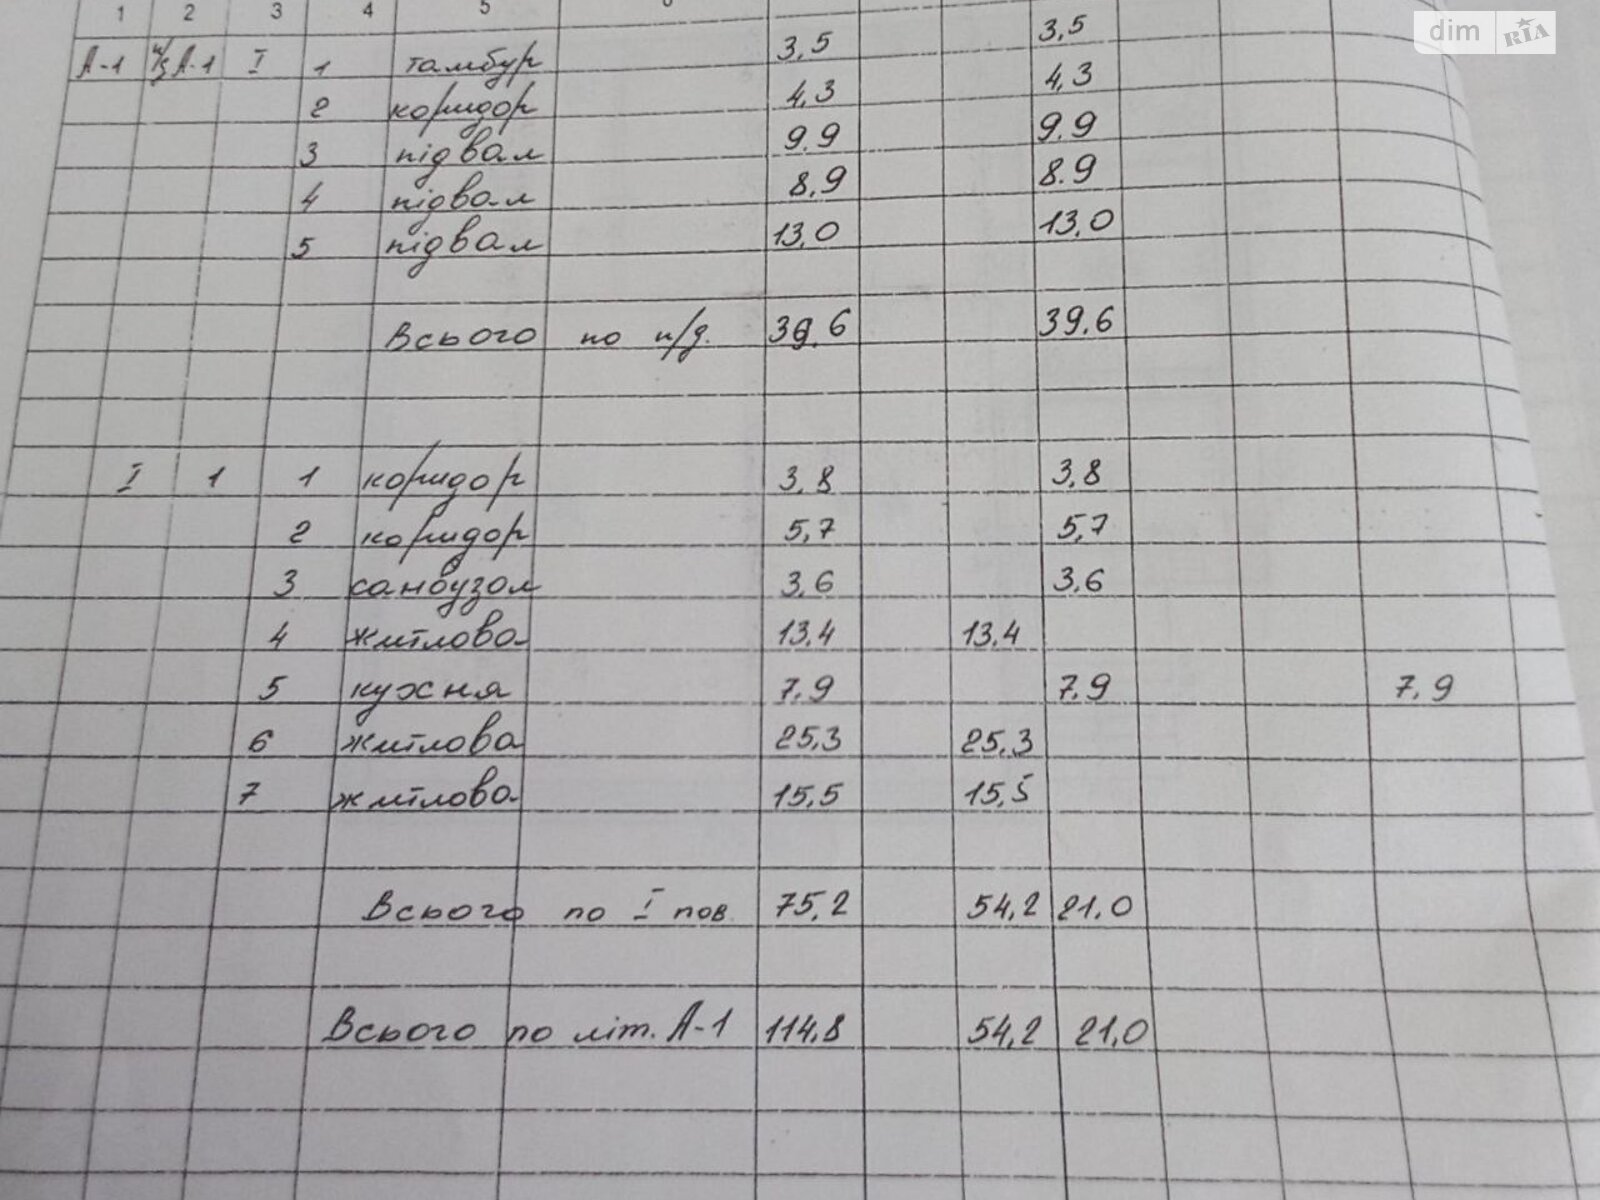 1 2 3 4 5 6
dim RIA
А-1 п/д А-1 I 1 тамбур 3,5 3,5
2 коридор 4,3 4,3
3 підвал 9.9 9.9
4 підвал 8.9 8.9
5 підвал 13,0 13,0
Всього по п/д. 39.6 39.6
I 1 1 коридор 3,8 3,8
2 коридор 5,7 5,7
3 санвузол 3,6 3,6
4 житлова 13,4 13.4
5 кухня 7.9 7.9 7.9
6 житлова 25,3 25,3
7 житлова 15,5 15,5
Всього по I пов. 75,2 54,2 21,0
Всього по літ. А-1 114,8 54,2 21,0